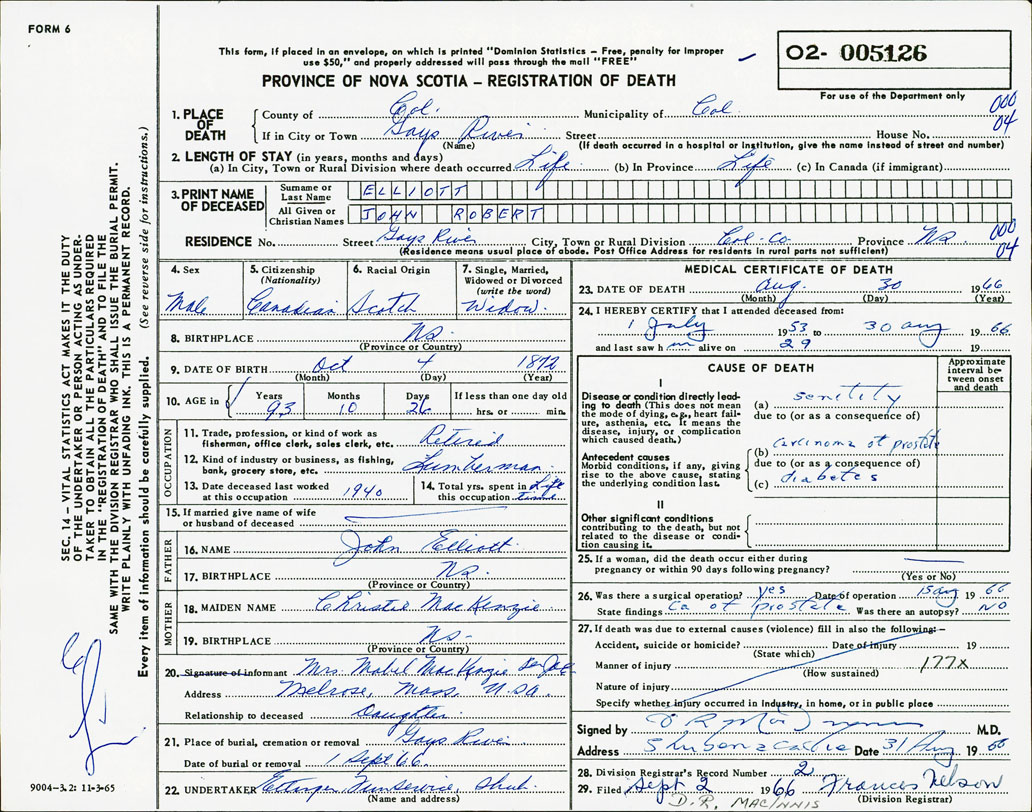 FORM 6
This form, if placed in an envelope, on which is printed "Dominion Statistics – Free, penalty for improper
use $50," and properly addressed will pass through the mail "FREE"
PROVINCE OF NOVA SCOTIA – REGISTRATION OF DEATH
O2- 005126
For use of the Department only
000
04
1. PLACE OF DEATH County of Col. Municipality of Col.
If in City or Town Gays River Street House No.
(Name) (If death occurred in a hospital or institution, give the name instead of street and number)
2. LENGTH OF STAY (in years, months and days)
(a) In City, Town or Rural Division where death occurred Life (b) In Province Life (c) In Canada (if immigrant)
3. PRINT NAME OF DECEASED
Surname or Last Name ELLIOTT
All Given or Christian Names JOHN ROBERT
RESIDENCE No. Street Gays River City, Town or Rural Division Col. Co. Province NS
000
04
(Residence means usual place of abode. Post Office Address for residents in rural parts not sufficient)
SEC. 14 – VITAL STATISTICS ACT MAKES IT THE DUTY
OF THE UNDERTAKER OR PERSON ACTING AS UNDER-
TAKER TO OBTAIN ALL THE PARTICULARS REQUIRED
IN THE "REGISTRATION OF DEATH" AND TO FILE THE
SAME WITH THE DIVISION REGISTRAR WHO SHALL ISSUE THE BURIAL PERMIT.
WRITE PLAINLY WITH UNFADING INK. THIS IS A PERMANENT RECORD.
Every item of information should be carefully supplied. (See reverse side for instructions.)
4. Sex
Male
5. Citizenship
(Nationality)
Canadian
6. Racial Origin
Scotch
7. Single, Married,
Widowed or Divorced
(write the word)
Widow.
8. BIRTHPLACE NS.
(Province or Country)
9. DATE OF BIRTH Oct 4 1872
(Month) (Day) (Year)
10. AGE in
Years Months Days If less than one day old
93 10 26 hrs. or min.
OCCUPATION
11. Trade, profession, or kind of work as
fisherman, office clerk, sales clerk, etc. Retired
12. Kind of industry or business, as fishing,
bank, grocery store, etc. Lumberman
13. Date deceased last worked
at this occupation 1940
14. Total yrs. spent in
this occupation Life time
15. If married give name of wife
or husband of deceased
FATHER
16. NAME John Elliott
17. BIRTHPLACE NS.
(Province or Country)
MOTHER
18. MAIDEN NAME Christie MacKenzie
19. BIRTHPLACE NS-
(Province or Country)
20. Signature of informant Mrs Mabel MacKenzie
Address Melrose, Mass. U.S.A.
Relationship to deceased Daughter
21. Place of burial, cremation or removal Gays River
Date of burial or removal 1 Sept 66
22. UNDERTAKER Ettinger Funservice Shub.
(Name and address)
9004-3.2: 11-3-65
MEDICAL CERTIFICATE OF DEATH
23. DATE OF DEATH Aug. 30 1966
(Month) (Day) (Year)
24. I HEREBY CERTIFY that I attended deceased from:
1 July 1953 to 30 aug 1966
and last saw h m alive on 29 19
CAUSE OF DEATH
Approximate interval between onset and death
I
Disease or condition directly lead-
ing to death (This does not mean
the mode of dying, e.g., heart fail-
ure, asthenia, etc. It means the
disease, injury, or complication
which caused death.)
(a) senility
due to (or as a consequence of)
Antecedent causes
Morbid conditions, if any, giving
rise to the above cause, stating
the underlying condition last.
(b) carcinoma of prostate
due to (or as a consequence of)
(c) diabetes
II
Other significant conditions
contributing to the death, but not
related to the disease or condi-
tion causing it.
25. If a woman, did the death occur either during
pregnancy or within 90 days following pregnancy?
(Yes or No)
26. Was there a surgical operation? yes Date of operation 19 66
State findings Ca of prostate Was there an autopsy? NO
27. If death was due to external causes (violence) fill in also the following:–
Accident, suicide or homicide? Date of injury 19
(State which)
Manner of injury 177x
(How sustained)
Nature of injury
Specify whether injury occurred in industry, in home, or in public place
Signed by M.D.
Address Shubenacadie Date 31 Aug 1966
28. Division Registrar's Record Number 2
29. Filed Sept 2 1966 Frances Nelson
(Division Registrar)
D.R. MACINNIS